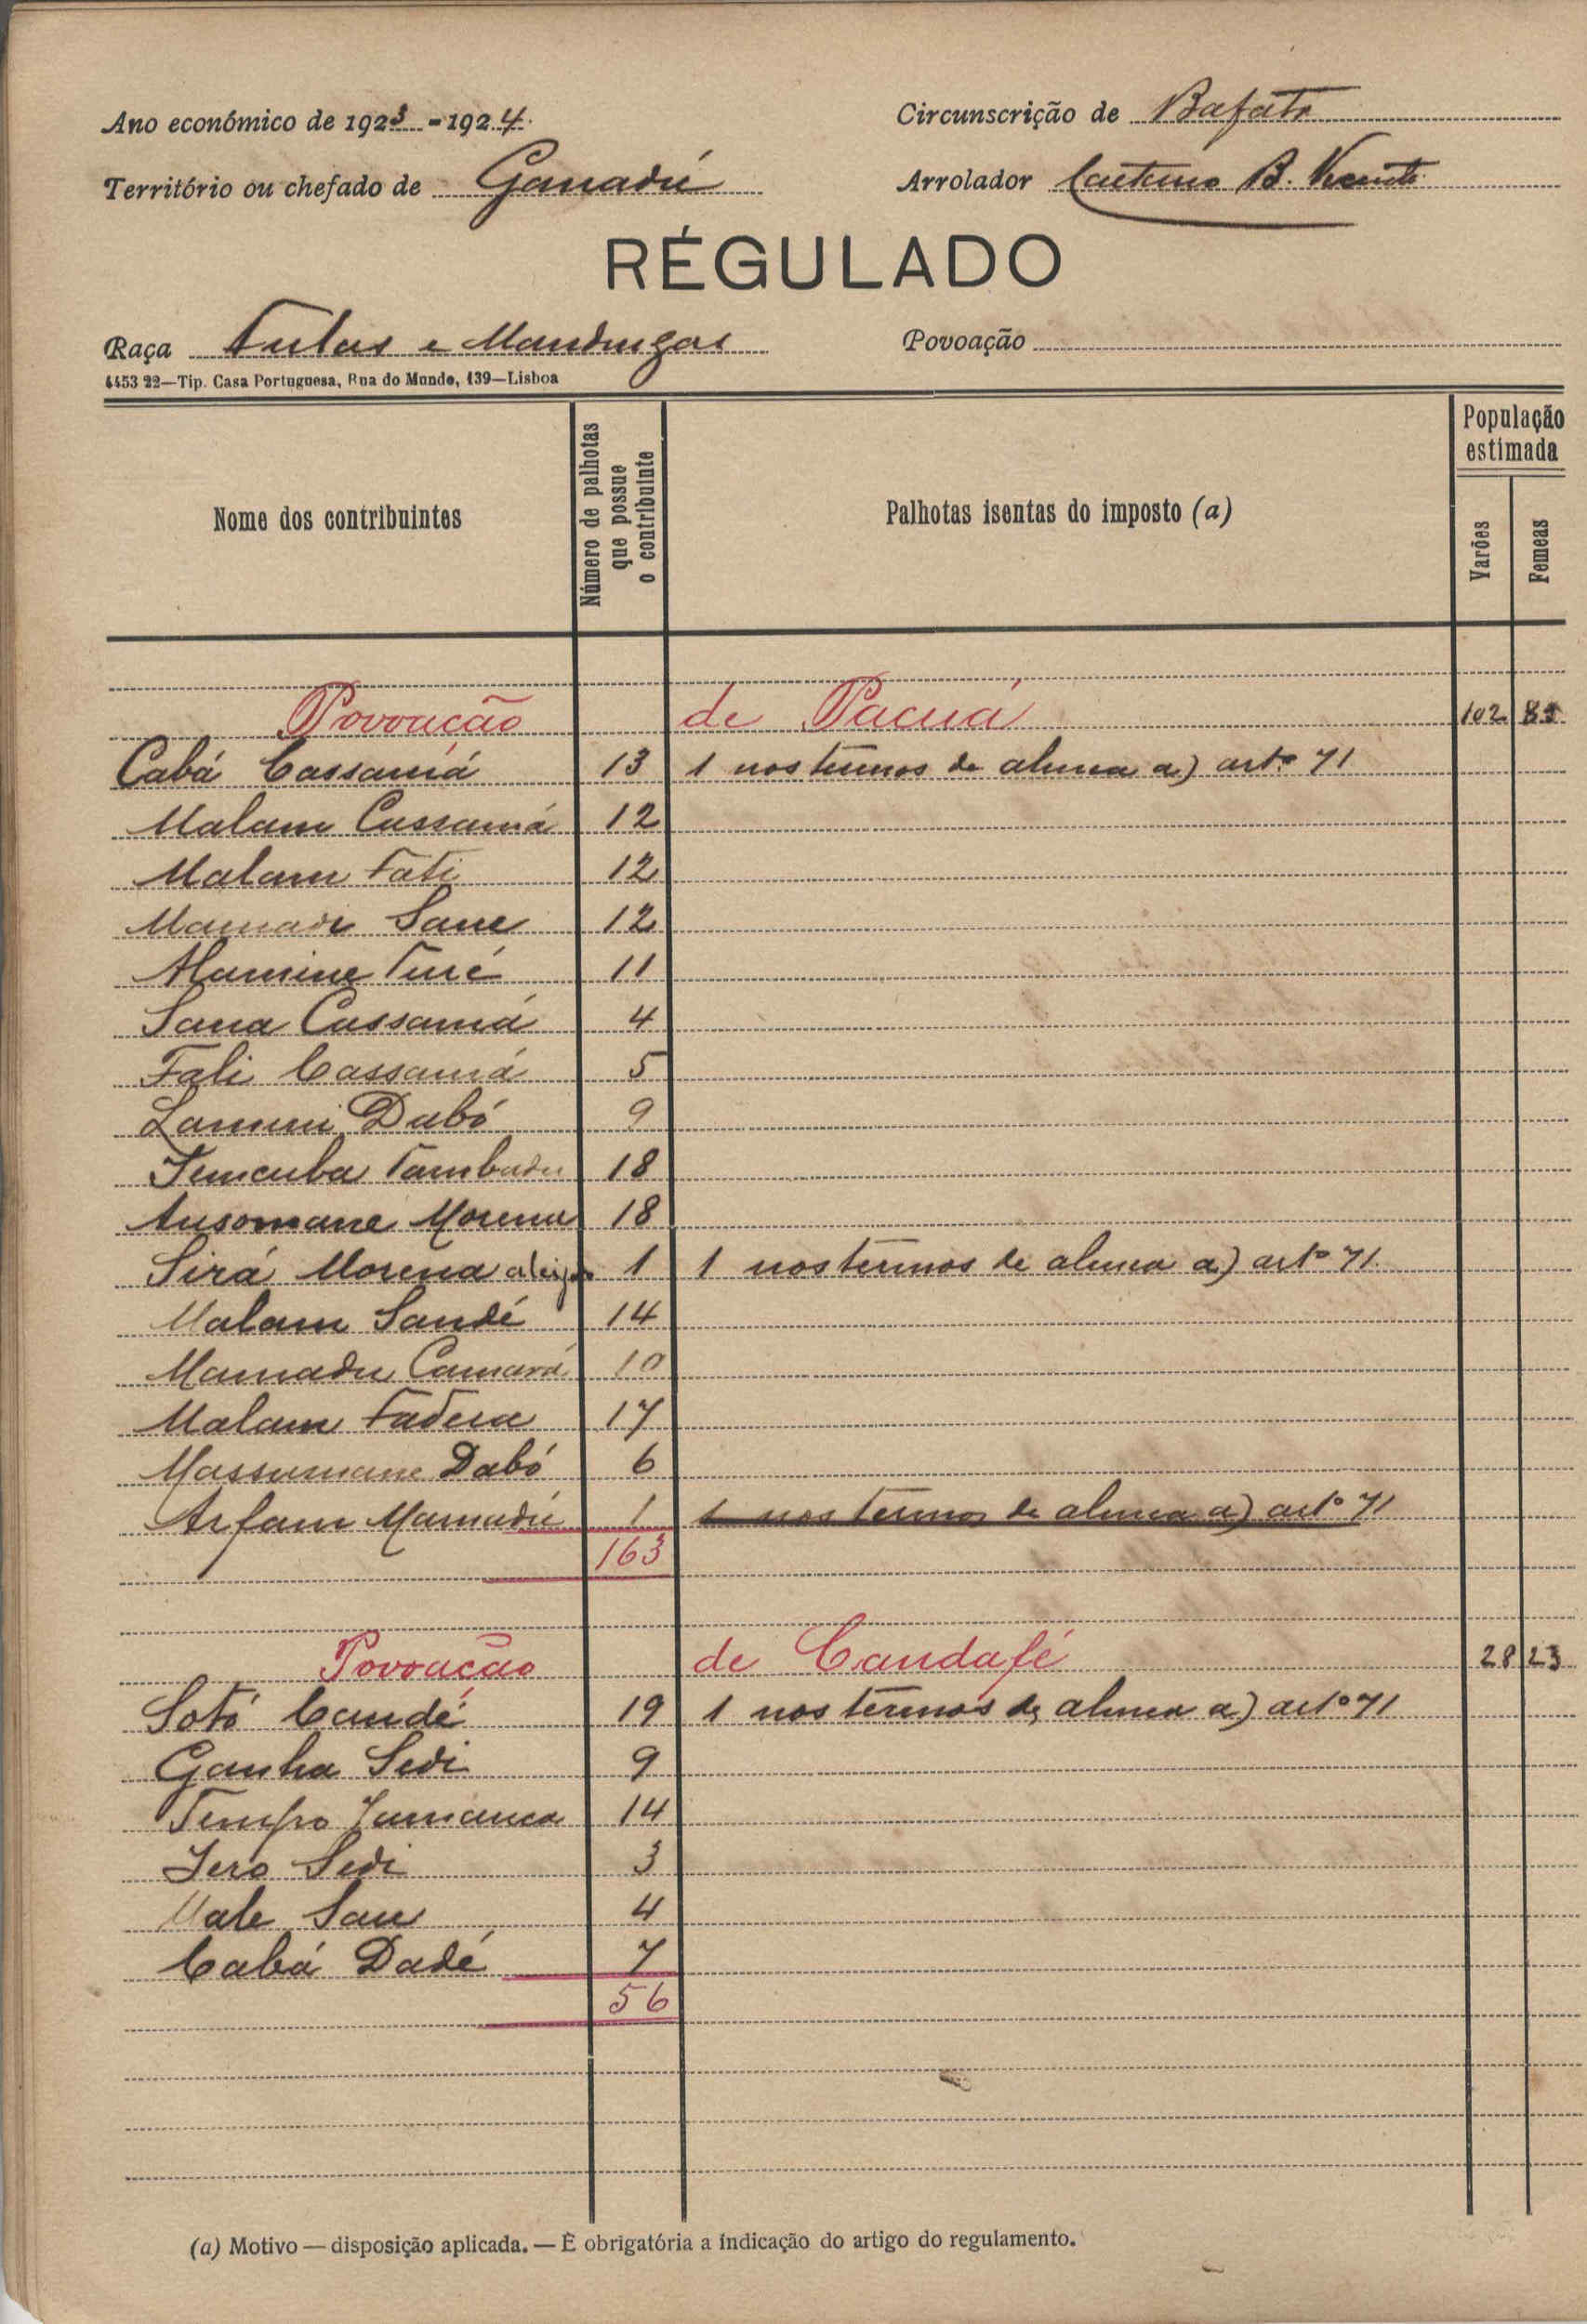 Ano económico de 1923 - 1924
Circunscrição de Bafatá
Território ou chefado de Ganadú
Arrolador Caetano B. Vicente
RÉGULADO
Raça Fulas e Mandingas
Povoação
4453 22—Tip. Casa Portuguesa, Rua do Mundo, 139—Lisboa
Nome dos contribuintes
Número de palhotas que possue o contribuinte
Palhotas isentas do imposto (a)
População estimada
Varões
Femeas
Povoação de Pacuá 102 85
Cabá Cassamá 13 1 nos termos de alinea a) artº 71
Malam Cassamá 12
Malam Fati 12
Mamadi Sane 12
Alamine Turé 11
Sana Cassamá 4
Fali Cassamá 5
Lamini Dabó 9
Temcuba Tambadu 18
Ansomane Morena 18
Sirá Morena aleij 1 1 nos termos de alinea a) artº 71
Malam Sandé 14
Mamadu Camará 10
Malam Fadera 17
Massumane Dabó 6
Arfam Mamadú 1 1 nos termos de alinea a) artº 71
163
Povoação de Candafé 28 23
Sotó Candé 19 1 nos termos de alinea a) artº 71
Ganha Sedi 9
Tempo Jamanca 14
Jero Sedi 3
Male Sau 4
Cabá Dadé 7
56
(a) Motivo — disposição aplicada. — É obrigatória a indicação do artigo do regulamento.